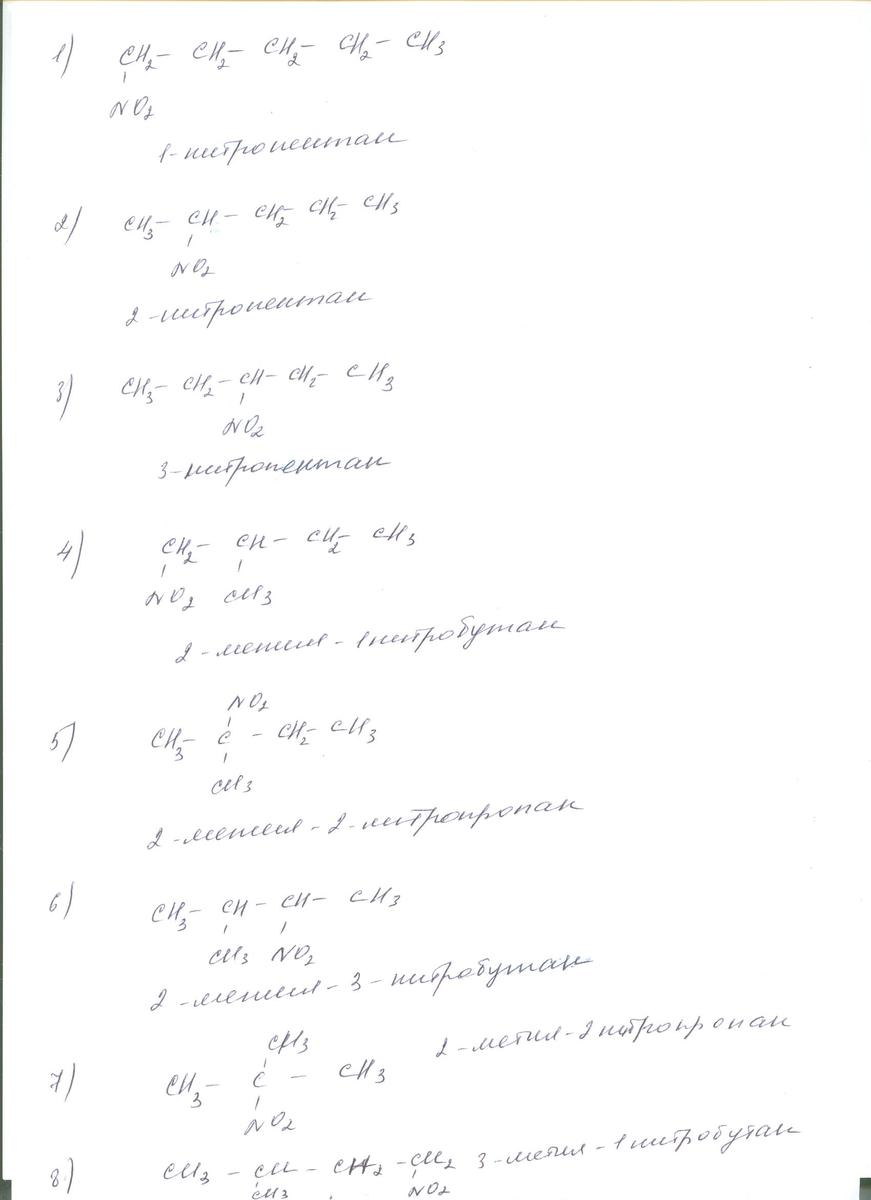 1) CH2- CH2- CH2- CH2- CH3
NO2
1-нитропентан
2) CH3- CH- CH2- CH2- CH3
NO2
2-нитропентан
3) CH3- CH2- CH- CH2- CH3
NO2
3-нитропентан
4) CH2- CH- CH2- CH3
NO2 CH3
2-метил-1нитробутан
NO2
5) CH3- C - CH2- CH3
CH3
2-метил-2-нитропропан
6) CH3- CH- CH- CH3
CH3 NO2
2-метил-3-нитробутан
CH3 2-метил-2нитропропан
7) CH3- C - CH3
NO2
8) CH3 - CH - CH2 - CH2 3-метил-1нитробутан
CH3 NO2